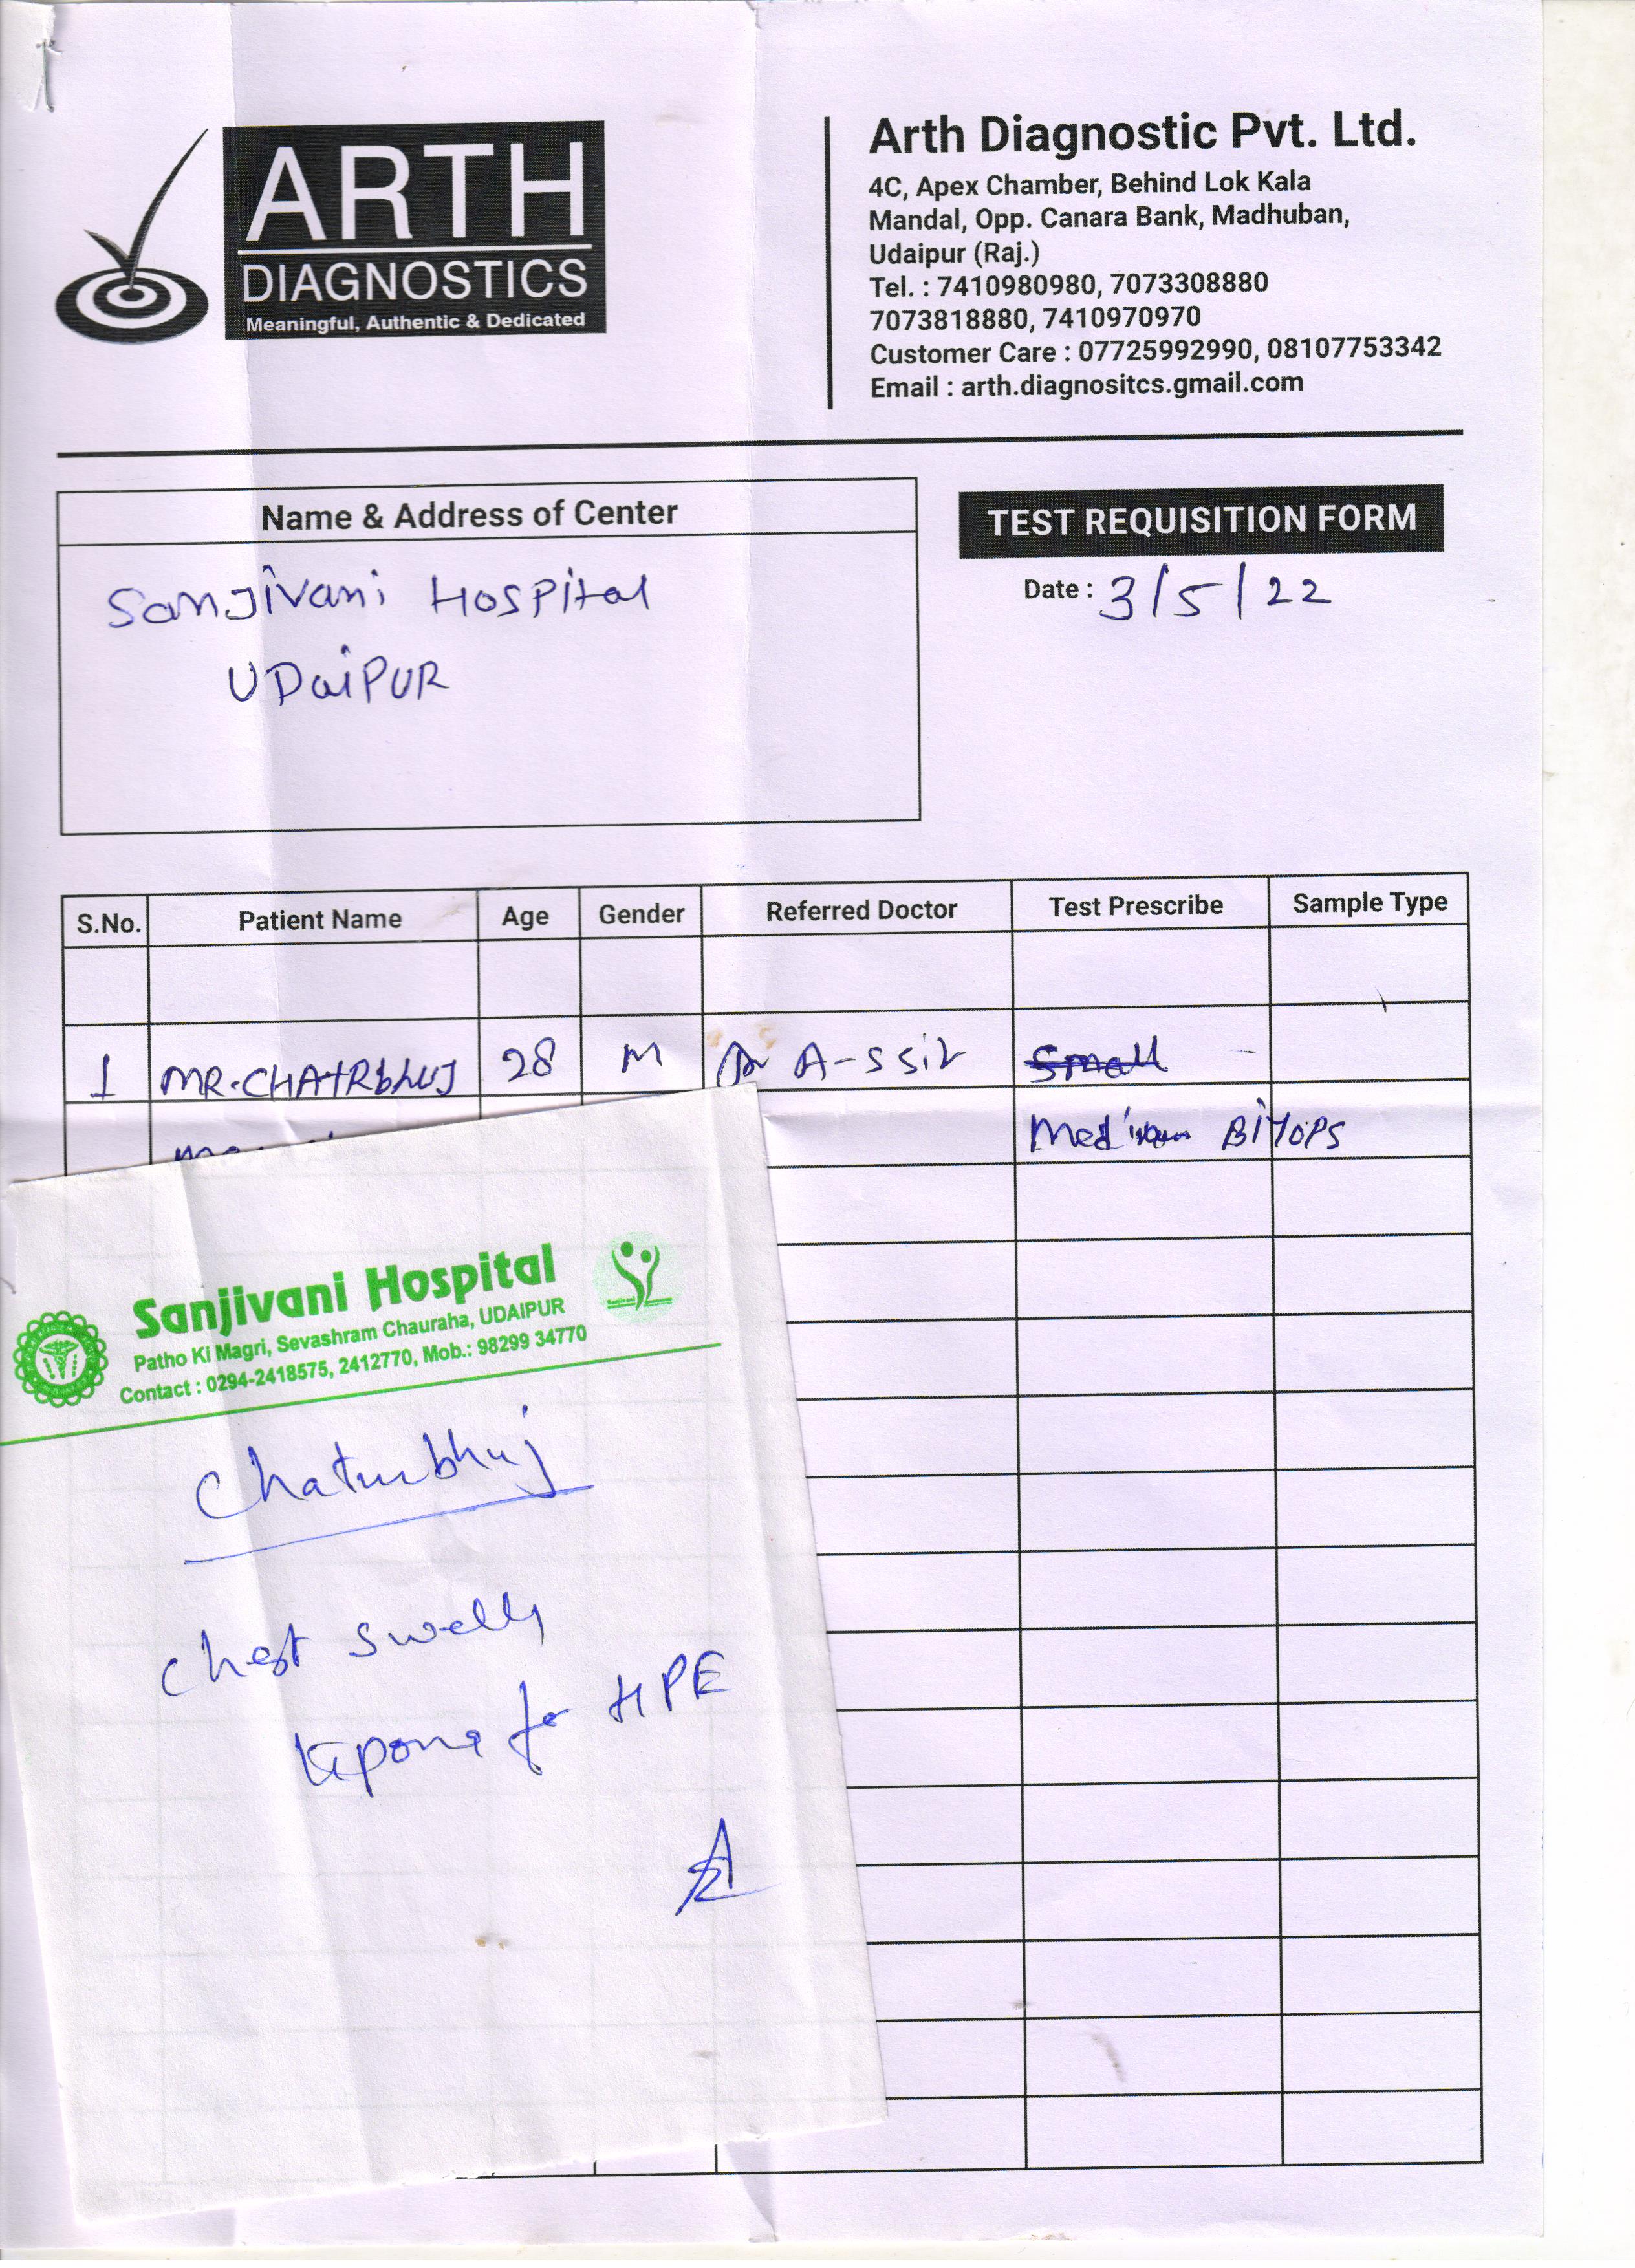 ARTH
DIAGNOSTICS
Meaningful, Authentic & Dedicated
Arth Diagnostic Pvt. Ltd.
4C, Apex Chamber, Behind Lok Kala
Mandal, Opp. Canara Bank, Madhuban,
Udaipur (Raj.)
Tel. : 7410980980, 7073308880
7073818880, 7410970970
Customer Care : 07725992990, 08107753342
Email : arth.diagnositcs.gmail.com
Name & Address of Center
Sanjivani Hospital
UDaiPUR
TEST REQUISITION FORM
Date : 3/5/22
S.No. Patient Name Age Gender Referred Doctor Test Prescribe Sample Type
1 MR. CHATRbhUJ 28 M Dr A-S Small
Medium BiYOPS
Sanjivani Hospital
Patho Ki Magri, Sevashram Chauraha, UDAIPUR
Contact : 0294-2418575, 2412770, Mob.: 98299 34770
Chaturbhuj
Chest
for HPE